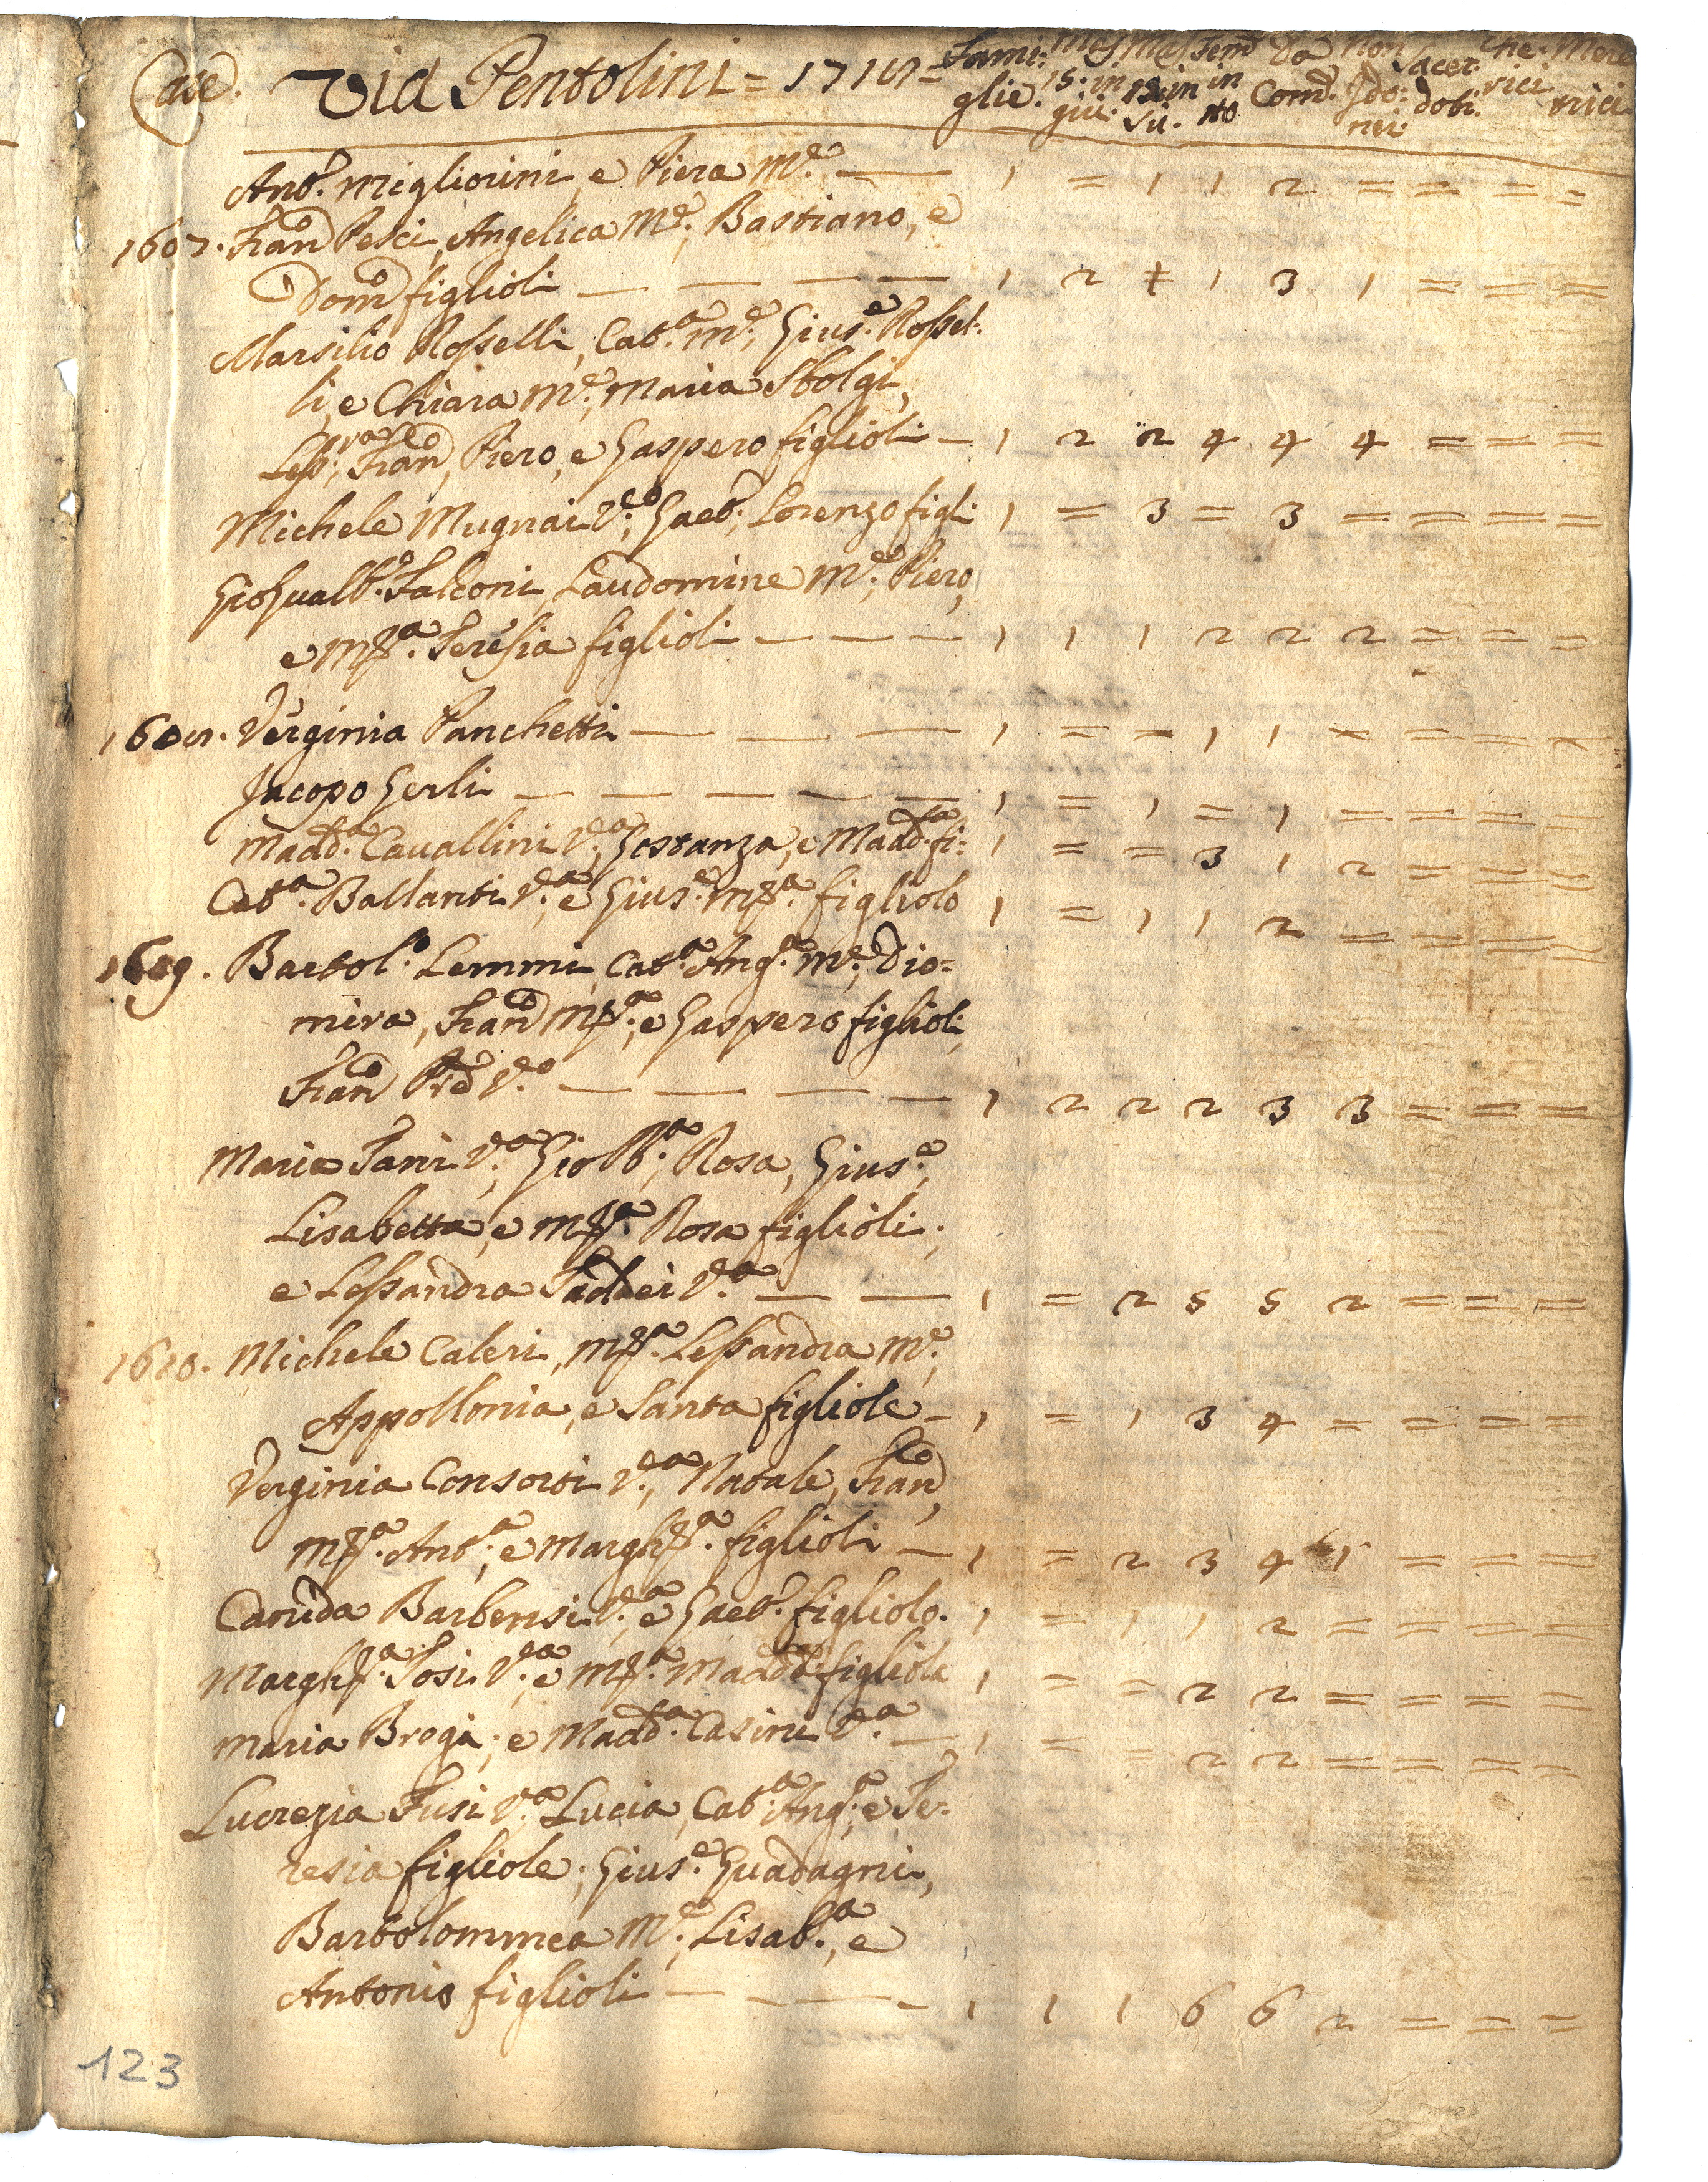 Case. Via Pentolini = 1710 = Fami: Mas Mas Fem Da Non Sacer: Che: Mere
glie. 15: in 15: in in Com: Ido: doti. rici trici
giù. sù. tto nei:
Ant.º Migliorini, e Piera M.e — 1 = 1 1 2 = = = =
1607. Fran.co Pesci, Angelica M.e, Bastiano, e
Dom.co figlioli — — — — 1 2 ‡ 1 3 1 = = =
Marsilio Rosselli, Cat.a M.e, Gius.e Rossel:
li, e Chiara M.e, Maria Stolgi,
Less.ra, Fran.co, Piero, e Gaspero figlioli — 1 2 2 4 4 4 = = =
Michele Mugnai V.o, Gaet.o, Lorenzo figli 1 = 3 = 3 = = = =
Gio Gualb.o Falconi, Laudomine M.e, Piero,
e M.a Teresia figlioli — — — 1 1 1 2 2 2 = = =
1608. Verginia Panchetti — — — 1 = = 1 1 = = = =
Jacopo Gerli — — — — — 1 = 1 = 1 = = = =
Madd.a Cavallini V.a, Gostanza, e Madd.a fi: 1 = = 3 1 2 = = =
Cat.a Ballanti V.a, e Gius.e M.a figliolo 1 = 1 1 2 = = = =
1609. Bartol.o Lemmi, Cat.a Ang.a M.e, Dio=
mira, Fran.co M.a, e Gaspero figlioli,
Fran.co V.o — — — — 1 2 2 2 3 3 = = =
Maria Fani V.a, Gio Bª, Rosa, Gius.e,
Lisabetta, e M.a Rosa figlioli;
e Lessandra Taddei V.a — — 1 = 2 5 5 2 = = =
1610. Michele Caleri, M.a Lessandra M.e,
Appollonia, e Santa figliole — 1 = 1 3 4 = = = =
Verginia Consorti V.a, Natale, Fran.co,
M.a Ant.a, e Margh.a figlioli — 1 = 2 3 4 1 = = =
Canida Barbensi V.a, e Gaet.o figliolo. 1 = 1 1 2 = = = =
Margh.a Tosi V.a, e M.a Madd.a figliola 1 = = 2 2 = = = =
Maria Brogi; e Madd.a Casini V.a — 1 = = 2 2 = = = =
Lucrezia Fusi V.a, Lucia, Cat.a Ang.a, e Te=
resia figliole; Gius.e Guadagni,
Bartolommea M.e, Lisab.a, e
Antonio figlioli — — — — 1 1 1 6 6 2 = = =
123